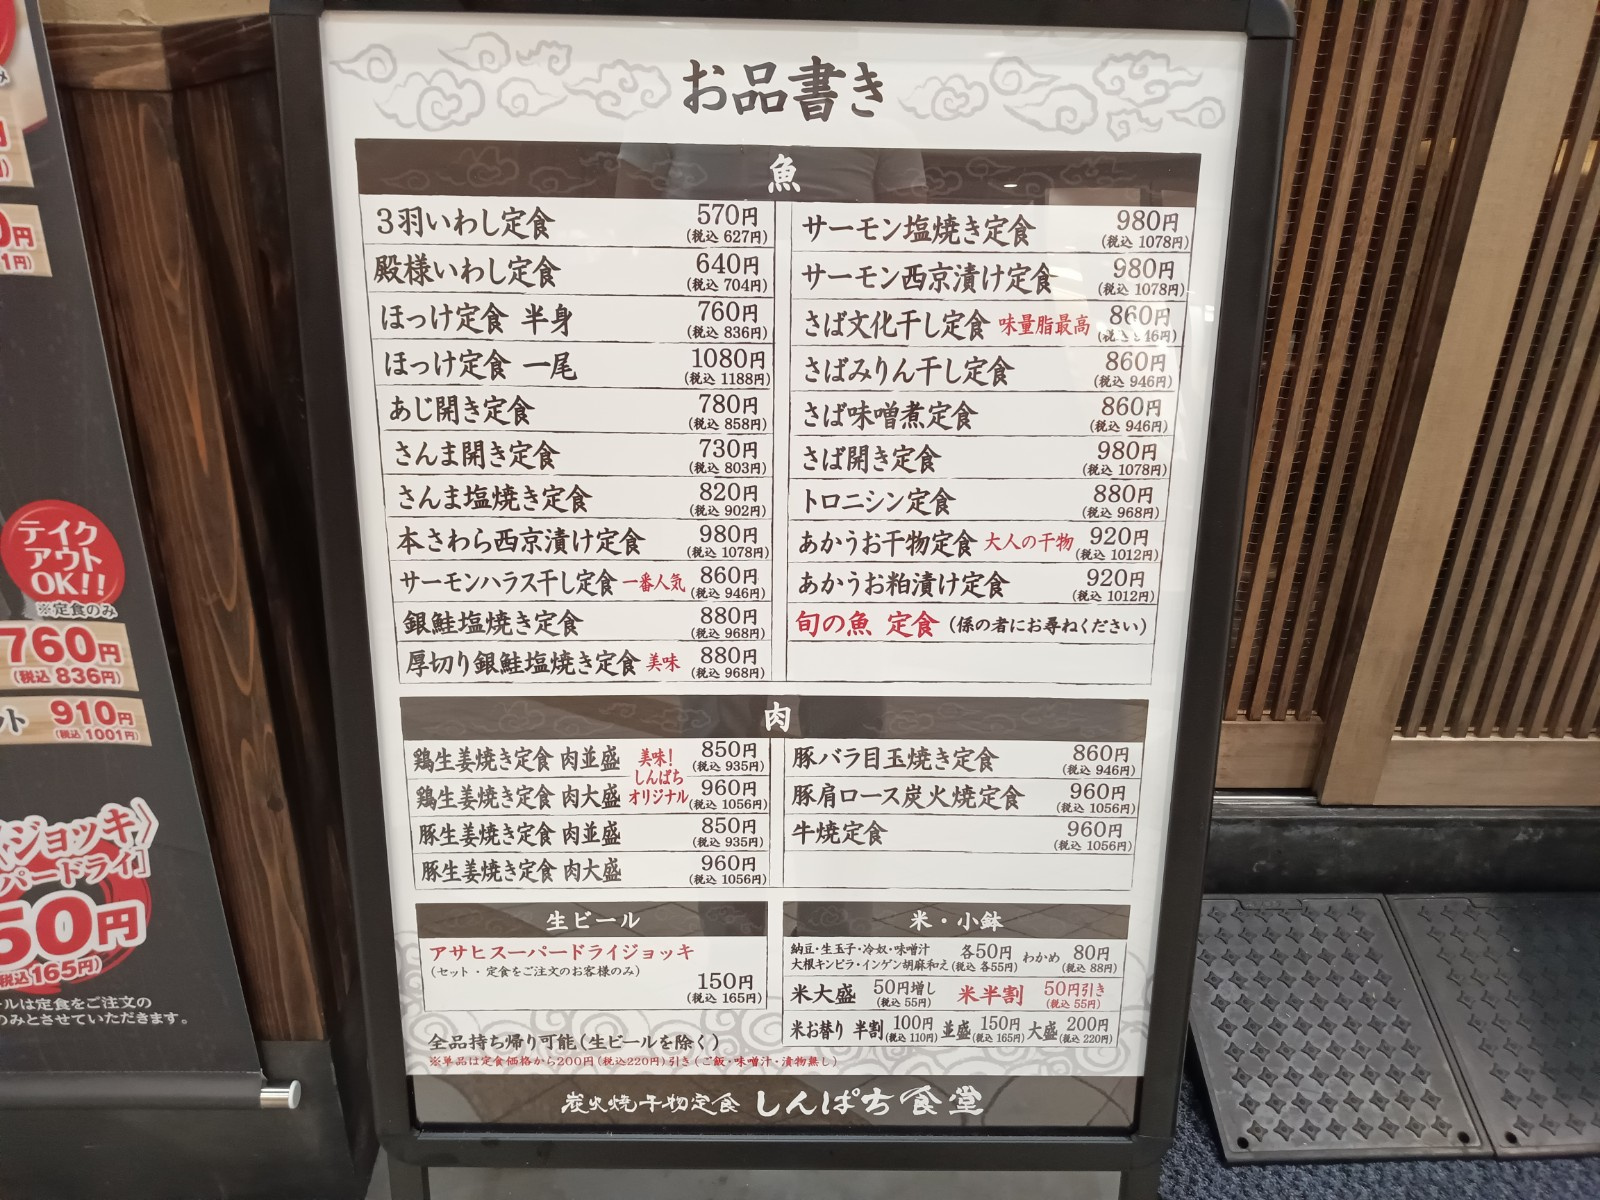 お品書き
魚
3羽いわし定食 570円 (税込 627円)
殿様いわし定食 640円 (税込 704円)
ほっけ定食 半身 760円 (税込 836円)
ほっけ定食 一尾 1080円 (税込 1188円)
あじ開き定食 780円 (税込 858円)
さんま開き定食 730円 (税込 803円)
さんま塩焼き定食 820円 (税込 902円)
本さわら西京漬け定食 980円 (税込 1078円)
サーモンハラス干し定食 一番人気 860円 (税込 946円)
銀鮭塩焼き定食 880円 (税込 968円)
厚切り銀鮭塩焼き定食 美味 880円 (税込 968円)
サーモン塩焼き定食 980円 (税込 1078円)
サーモン西京漬け定食 980円 (税込 1078円)
さば文化干し定食 味量脂最高 860円 (税込 946円)
さばみりん干し定食 860円 (税込 946円)
さば味噌煮定食 860円 (税込 946円)
さば開き定食 980円 (税込 1078円)
トロニシン定食 880円 (税込 968円)
あかうお干物定食 大人の干物 920円 (税込 1012円)
あかうお粕漬け定食 920円 (税込 1012円)
旬の魚 定食 (係の者にお尋ねください)
肉
鶏生姜焼き定食 肉並盛 850円 (税込 935円)
鶏生姜焼き定食 肉大盛 960円 (税込 1056円)
美味!
しんぱち
オリジナル
豚生姜焼き定食 肉並盛 850円 (税込 935円)
豚生姜焼き定食 肉大盛 960円 (税込 1056円)
豚バラ目玉焼き定食 860円 (税込 946円)
豚肩ロース炭火焼定食 960円 (税込 1056円)
牛焼定食 960円 (税込 1056円)
生ビール
アサヒスーパードライジョッキ
(セット・定食をご注文のお客様のみ)
150円
(税込 165円)
全品持ち帰り可能(生ビールを除く)
※単品は定食価格から200円(税込220円)引き(ご飯・味噌汁・漬物無し)
米・小鉢
納豆・生玉子・冷奴・味噌汁
大根キンピラ・インゲン胡麻和え
各50円 (税込 各55円) わかめ 80円 (税込 88円)
米大盛 50円増し (税込 55円) 米半割 50円引き (税込 55円)
米お替り 半割 100円 (税込 110円) 並盛 150円 (税込 165円) 大盛 200円 (税込 220円)
炭火焼干物定食 しんぱち食堂
テイク
アウト
OK!!
※定食のみ
760円
(税込 836円)
910円
(税込 1001円)
ジョッキ》
パードライ]
50円
税込165円)
ールは定食をご注文の
のみとさせていただきます。